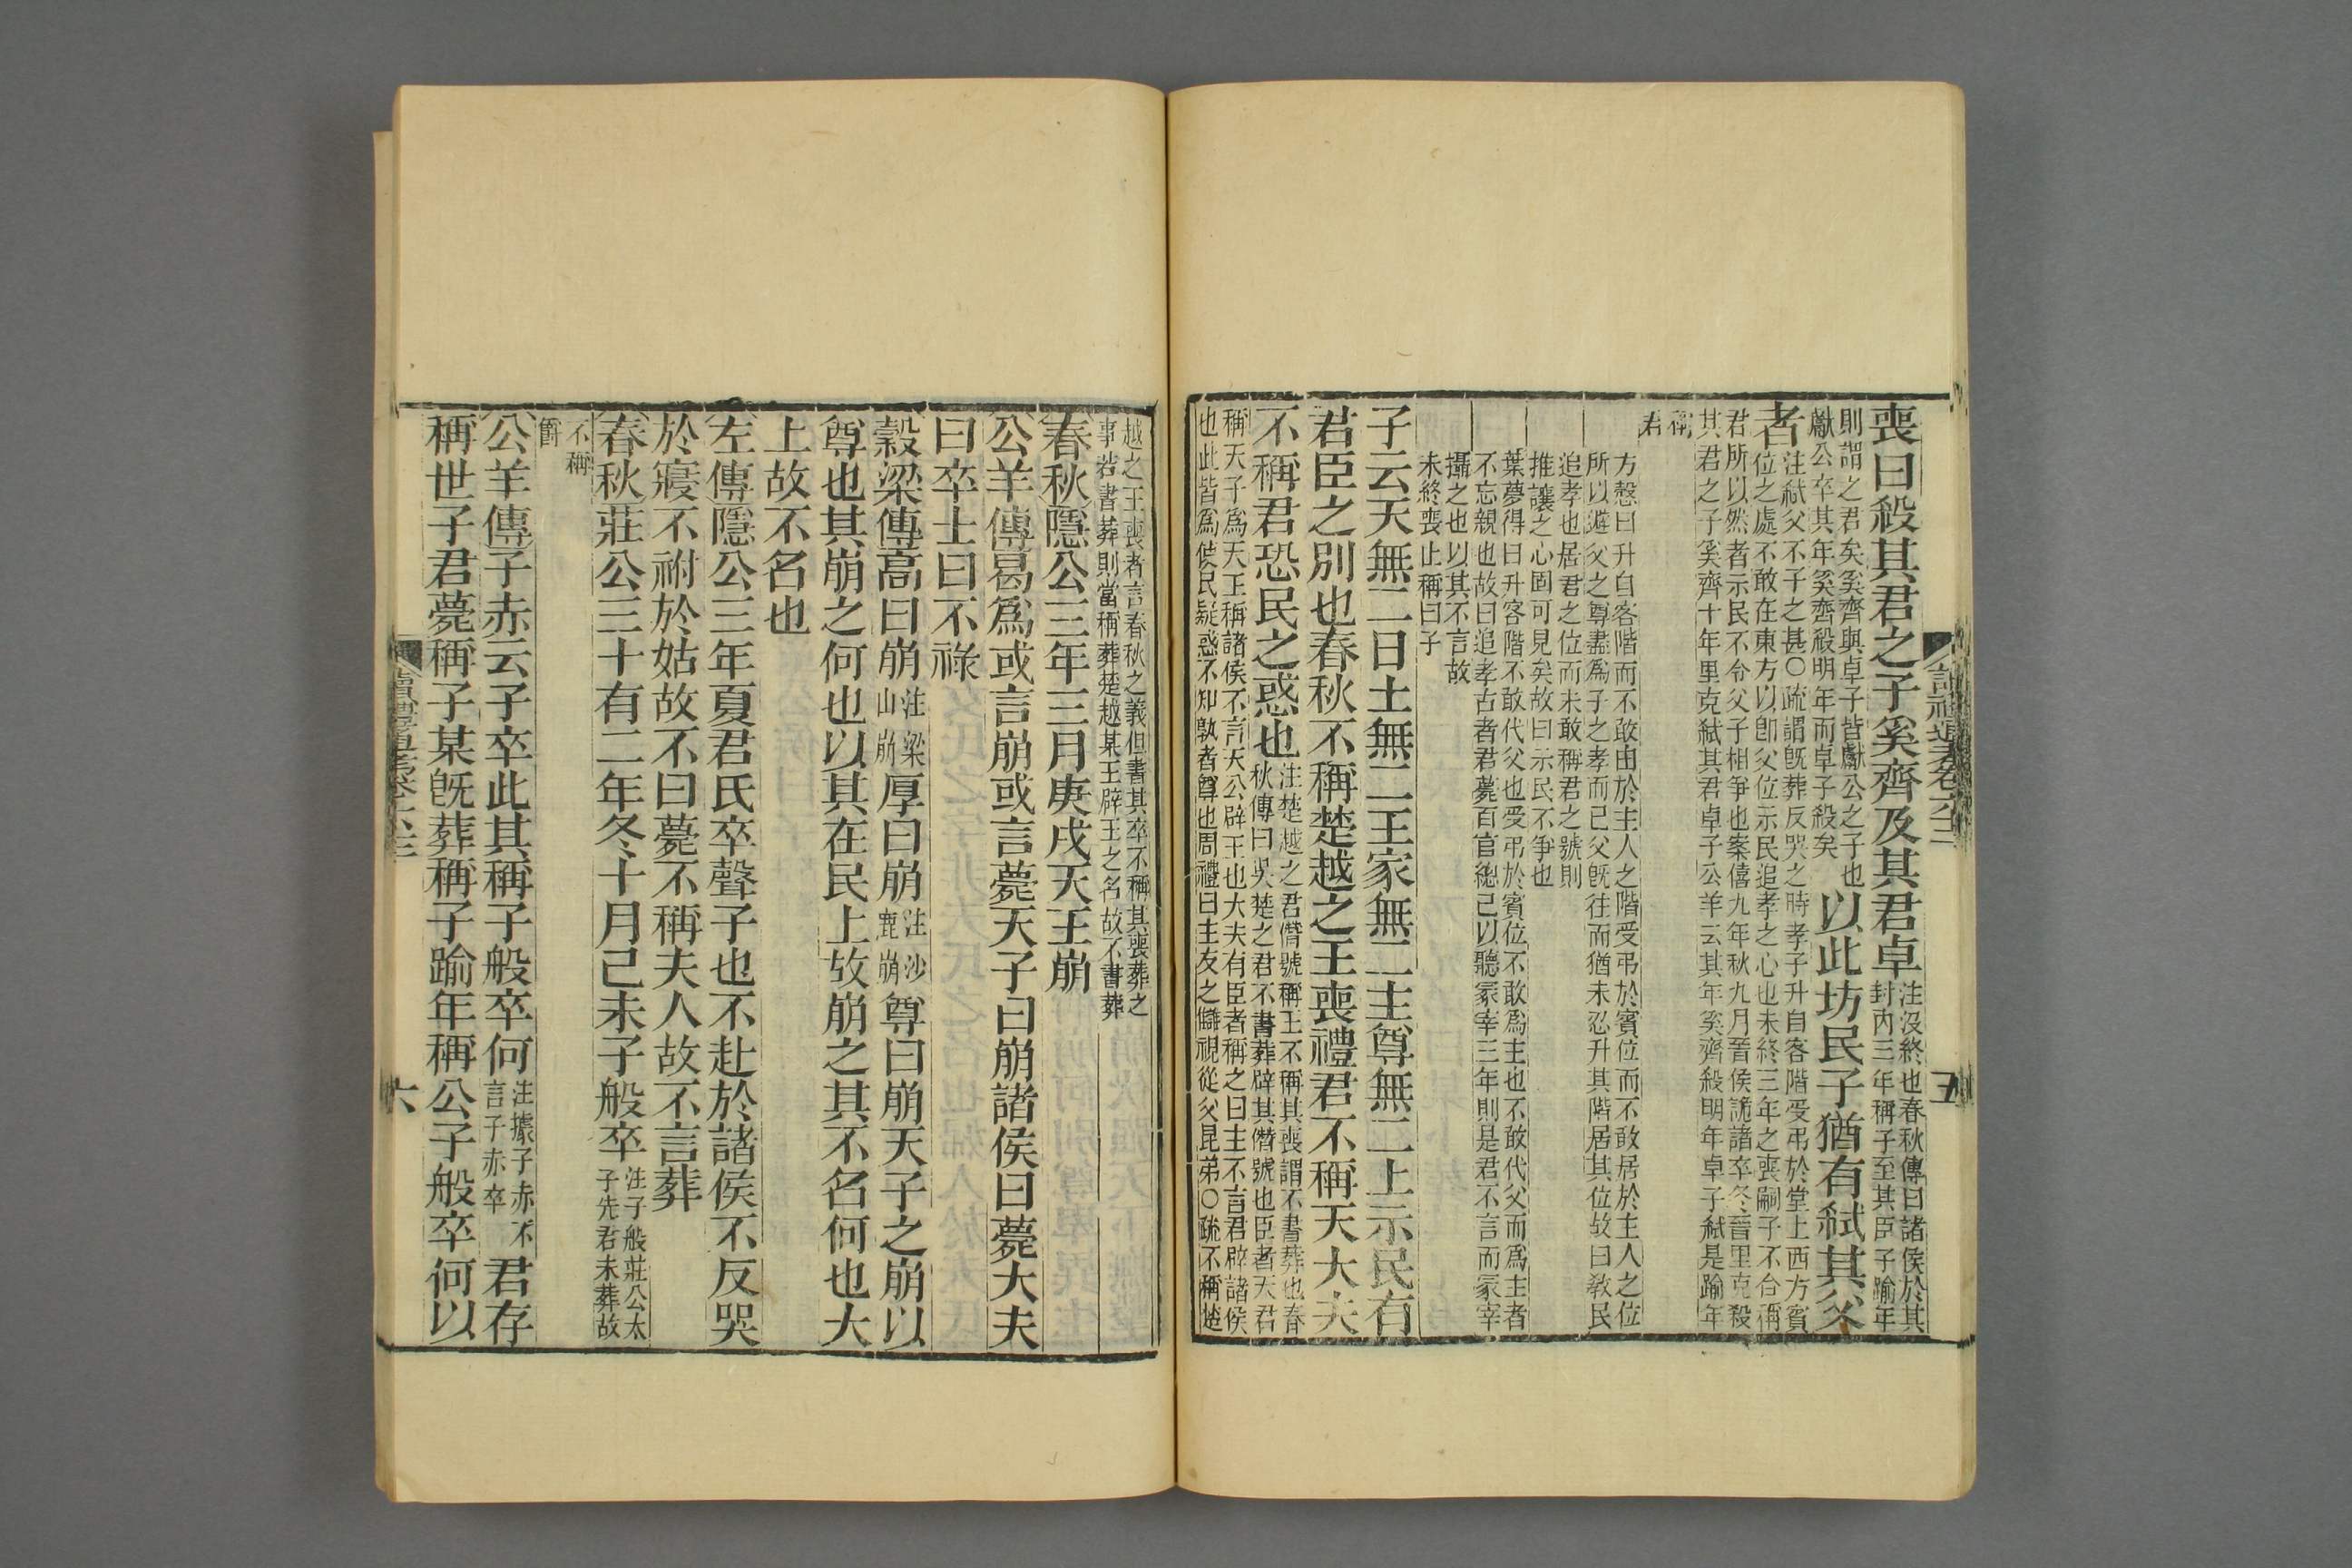 喪曰殺其君之子奚齊及其君卓注沒終也春秋傳曰諸侯於其封內三年稱子至其臣子踰年
則謂之君矣奚齊與卓子皆獻公之子也獻公卒其年奚齊殺明年而卓子殺矣以此坊民子猶有弒其父
者注弒父不子之甚○疏謂旣葬反哭之時孝子升自客階受弔於堂上西方賓位之處不敢在東方以卽父位示民追孝之心也未終三年之喪嗣子不合稱
君所以然者示民不令父子相爭也案僖九年秋九月晉侯詭諸卒冬晉里克殺其君之子奚齊十年里克弒其君卓子公羊云其年奚齊殺明年卓子弒是踰年
稱君
方慤曰升自客階而不敢由於主人之階受弔於賓位而不敢居於主人之位所以避父之尊盡爲子之孝而已父旣往而猶未忍升其階居其位故曰敎民
追孝也居君之位而未敢稱君之號則推讓之心固可見矣故曰示民不爭也
葉夢得曰升客階不敢代父也受弔於賓位不敢爲主也不敢代父而爲主者不忘親也故曰追孝古者君薨百官總己以聽冢宰三年則是君不言而冢宰
攝之也以其不言故未終喪止稱曰子
子云天無二日土無二王家無二主尊無二上示民有
君臣之別也春秋不稱楚越之王喪禮君不稱天大夫
不稱君恐民之惑也注楚越之君僭號稱王不稱其喪謂不書葬也春秋傳曰吳楚之君不書葬辟其僭號也臣者天君
稱天子爲天王稱諸侯不言天公辟王也大夫有臣者稱之曰主不言君辟諸侯也此皆爲使民疑惑不知孰者尊也周禮曰主友之讎視從父昆弟○疏不稱楚
詣禮通考卷六十二
五
越之王喪者言春秋之義但書其卒不稱其喪葬之事若書葬則當稱葬楚越某王辟王之名故不書葬
春秋隱公三年三月庚戌天王崩
公羊傳曷爲或言崩或言薨天子曰崩諸侯曰薨大夫
曰卒士曰不祿
穀梁傳高曰崩注梁山崩厚曰崩注沙鹿崩尊曰崩天子之崩以
尊也其崩之何也以其在民上故崩之其不名何也大
上故不名也
左傳隱公三年夏君氏卒聲子也不赴於諸侯不反哭
於寢不祔於姑故不曰薨不稱夫人故不言葬
春秋莊公三十有二年冬十月己未子般卒注子般莊公太子先君未葬故
不稱爵
公羊傳子赤云子卒此其稱子般卒何注據子赤不言子赤卒君存
稱世子君薨稱子某旣葬稱子踰年稱公子般卒何以
六